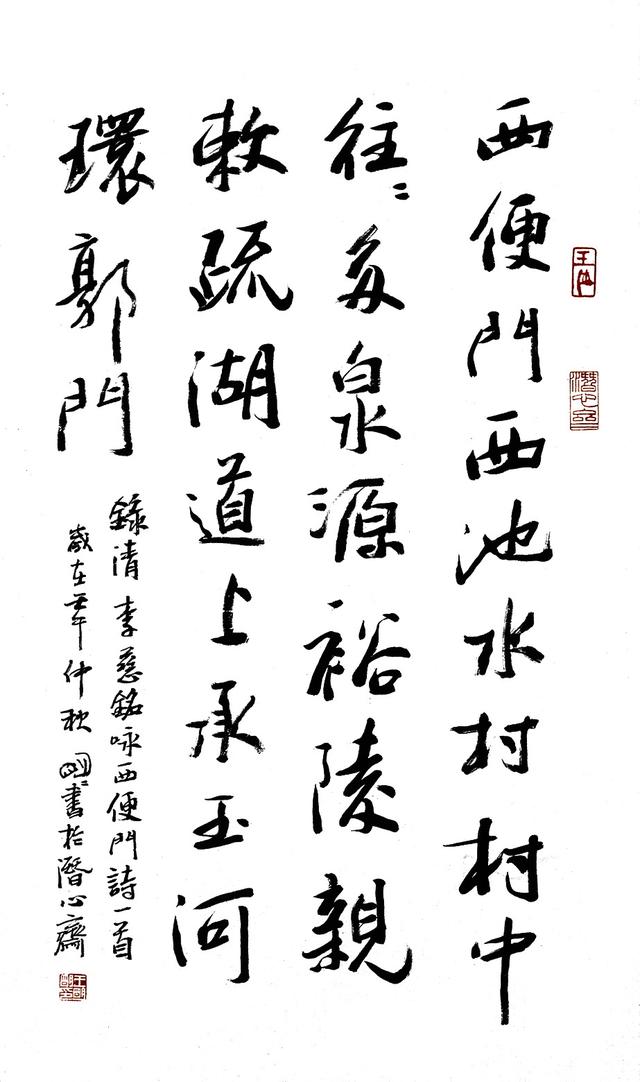 西便門西池水村村中
往々多泉源裕陵親
敕疏湖道上承玉河
環郭門
錄清李慈銘咏西便門詩一首
歲在壬午仲秋書於潛心齋